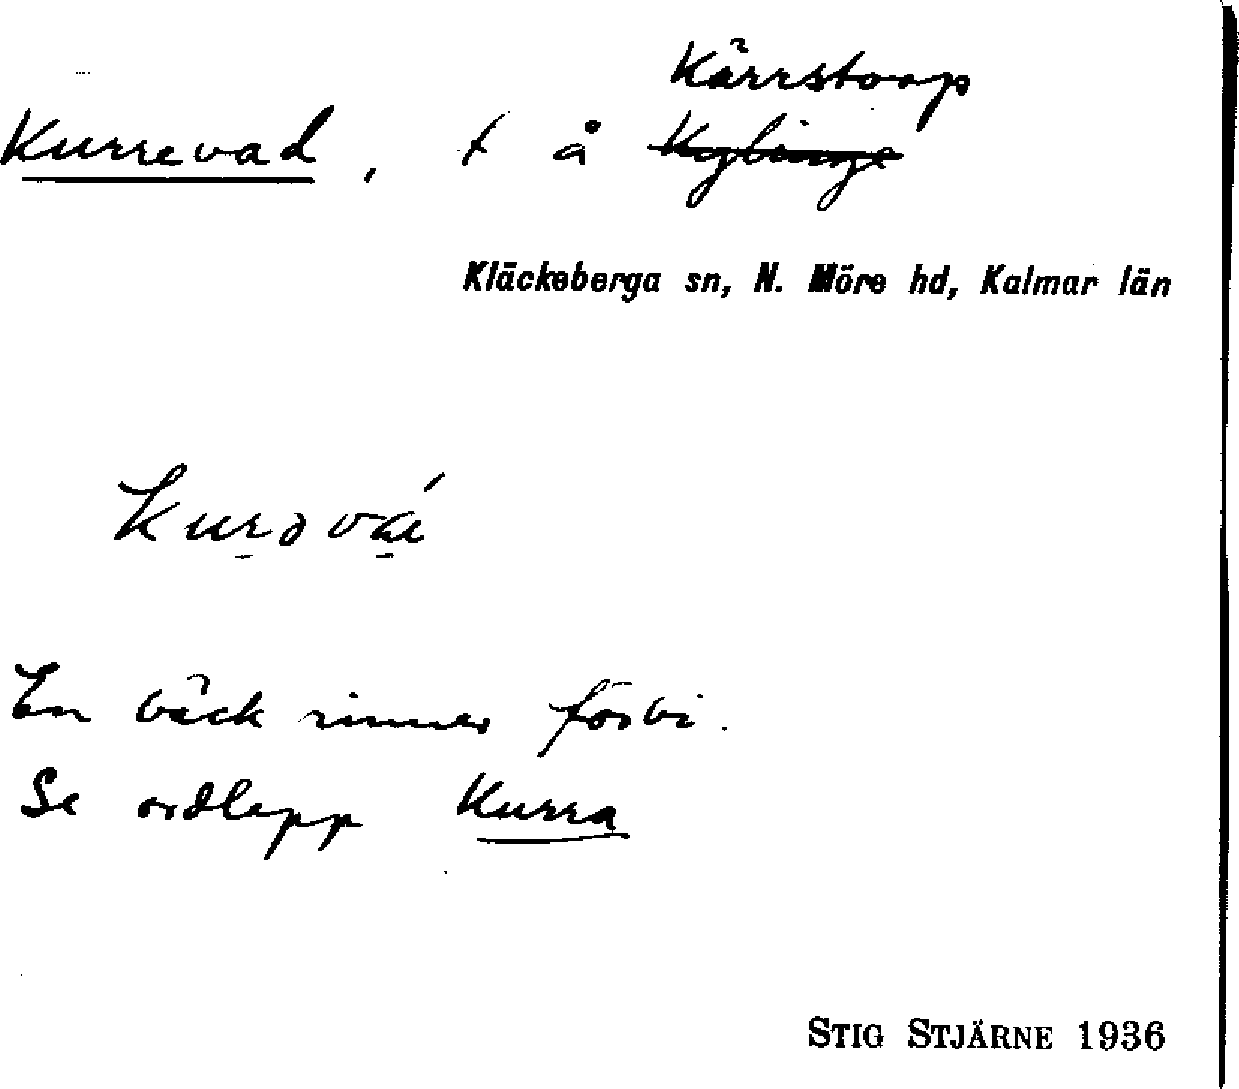 Kärrstorp
Kurrevad, t å Kylinge
Kläckeberga sn, N. Möre hd, Kalmar län
En bäck rinner förbi.
Se ordlapp Kurra
STIG STJÄRNE 1936